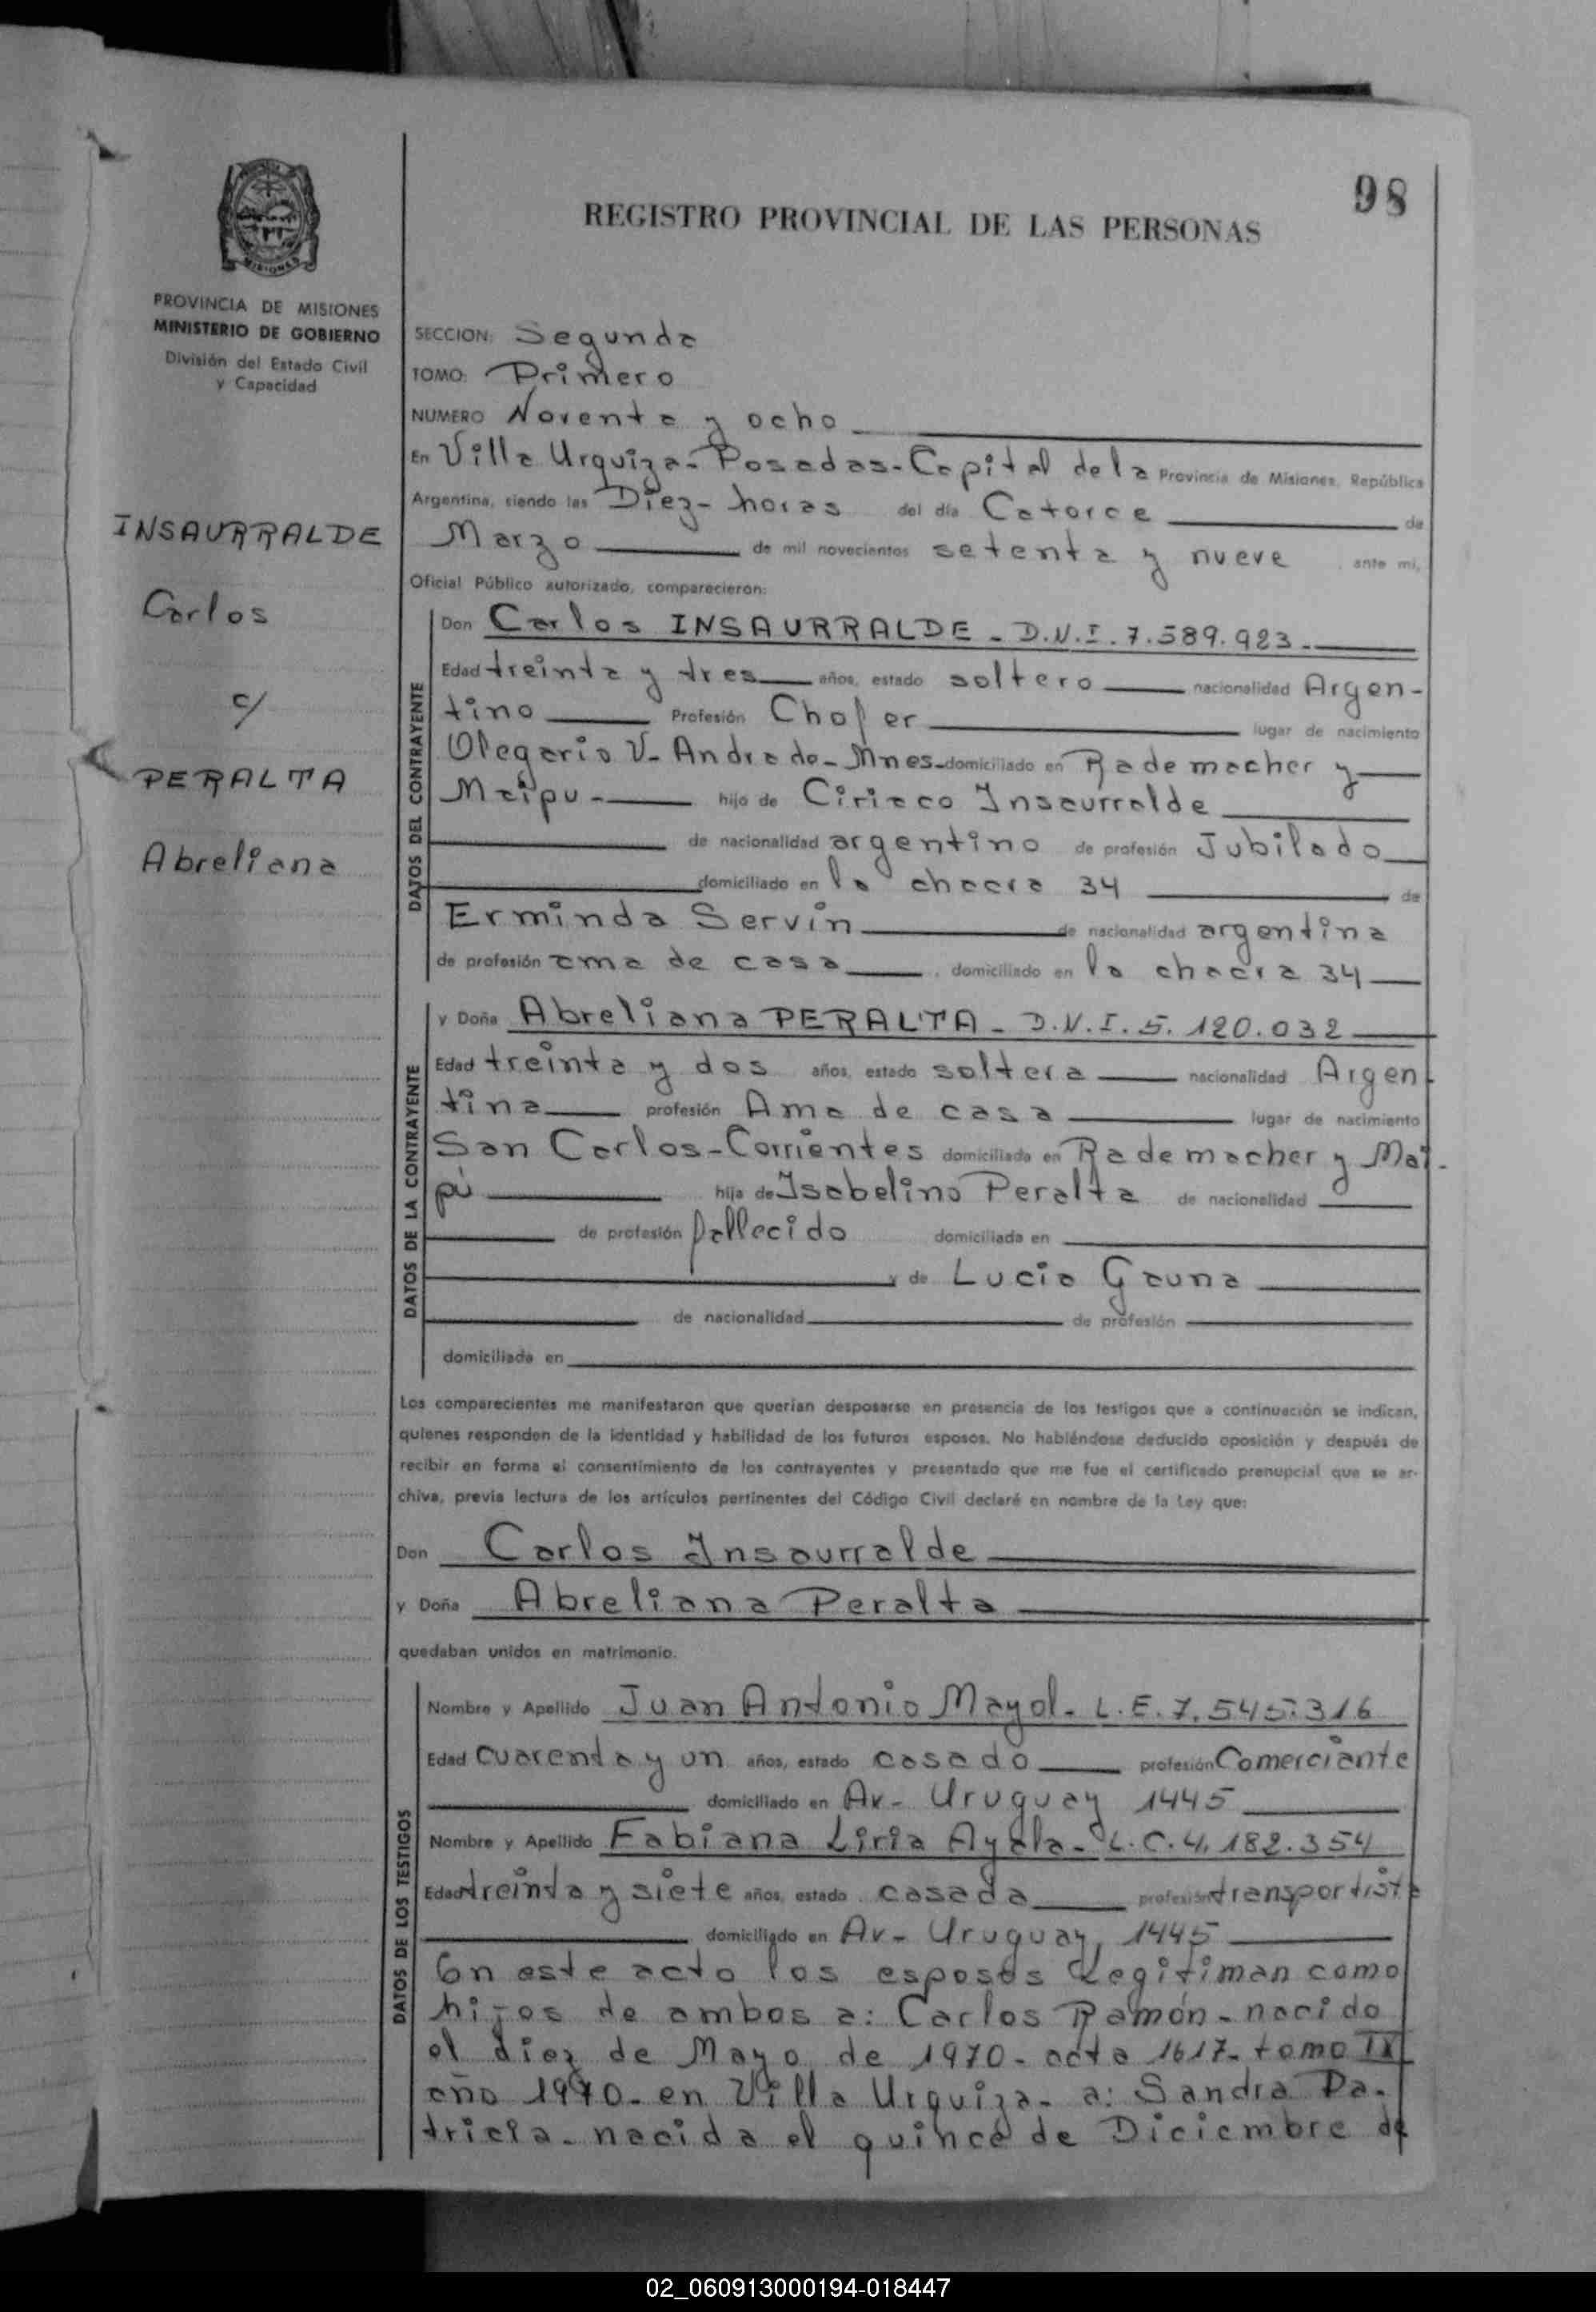 98
REGISTRO PROVINCIAL DE LAS PERSONAS
MISIONES
PROVINCIA DE MISIONES
MINISTERIO DE GOBIERNO
División del Estado Civil
y Capacidad
INSAURRALDE
Carlos
c/
PERALTA
Abreliana
SECCION: Segunda
TOMO: Primero
NUMERO Noventa y ocho
En Villa Urquiza-Posadas-Capital de la Provincia de Misiones, República
Argentina, siendo las Diez-horas del día Catorce de
Marzo de mil novecientos setenta y nueve, ante mí,
Oficial Público autorizado, comparecieron:
DATOS DEL CONTRAYENTE
Don Carlos INSAURRALDE - D.N.I. 7.589.923.
Edad treinta y tres años, estado soltero nacionalidad Argen-
tino Profesión Chofer lugar de nacimiento
Olegario V. Andrade-Mnes-domiciliado en Rademacher y
Maipu- hijo de Ciriaco Insaurralde
de nacionalidad argentino de profesión Jubilado
domiciliado en la chacra 34 de
Erminda Servín de nacionalidad argentina
de profesión ama de casa, domiciliado en la chacra 34
DATOS DE LA CONTRAYENTE
y Doña Abreliana PERALTA - D.N.I. 5.120.032
Edad treinta y dos años, estado soltera nacionalidad Argen-
tina profesión Ama de casa lugar de nacimiento
San Carlos-Corrientes domiciliada en Rademacher y Mai-
pú hija de Isabelino Peralta de nacionalidad
de profesión fallecido domiciliada en
y de Lucia Gauna
de nacionalidad de profesión
domiciliada en
Los comparecientes me manifestaron que querían desposarse en presencia de los testigos que a continuación se indican,
quienes responden de la identidad y habilidad de los futuros esposos. No habiéndose deducido oposición y después de
recibir en forma el consentimiento de los contrayentes y presentado que me fue el certificado prenupcial que se ar-
chiva, previa lectura de los artículos pertinentes del Código Civil declaré en nombre de la Ley que:
Don Carlos Insaurralde
y Doña Abreliana Peralta
quedaban unidos en matrimonio.
DATOS DE LOS TESTIGOS
Nombre y Apellido Juan Antonio Mayol- L.E. 7.545.316
Edad cuarenta y un años, estado casado profesión Comerciante
domiciliado en Av- Uruguay 1445
Nombre y Apellido Fabiana Liria Ayala- L.C. 4.182.354
Edad treinta y siete años, estado casada profesión transportista
domiciliado en Av- Uruguay, 1445
En este acto los esposos Legitiman como
hijos de ambos a: Carlos Ramón-nacido
el diez de Mayo de 1970- acta 1617- tomo IX
año 1970- en Villa Urquiza- a: Sandra Pa-
tricia- nacida el quince de Diciembre de
02_060913000194-018447